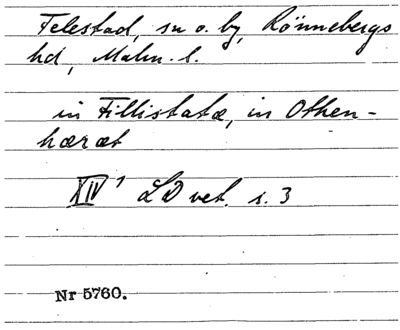 Felestad, sn o. by, Rönnebergs
hd, Malm. l.
in Fillistatæ, in Othen-
hæræt
XIV¹ LD vet. s. 3
Nr 5760.